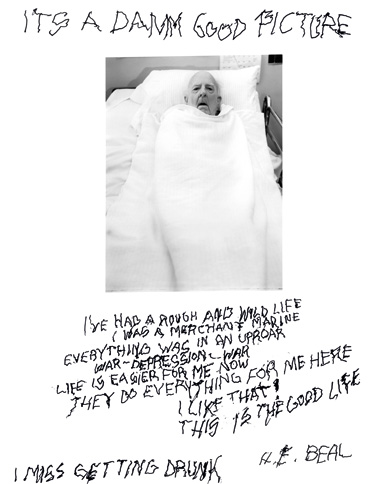 IT'S A DAMM GOOD PICTURE
I'VE HAD A ROUGH AND WILD LIFE
I WAS A MERCHANT MARINE
EVERYTHING WAS IN AN UPROAR
WAR-DEPRESSION-WAR
LIFE IS EASIER FOR ME NOW
THEY DO EVERYTHING FOR ME HERE
I LIKE THAT!
THIS IS THE GOOD LIFE
I MISS GETTING DRUNK
H.E. BEAL